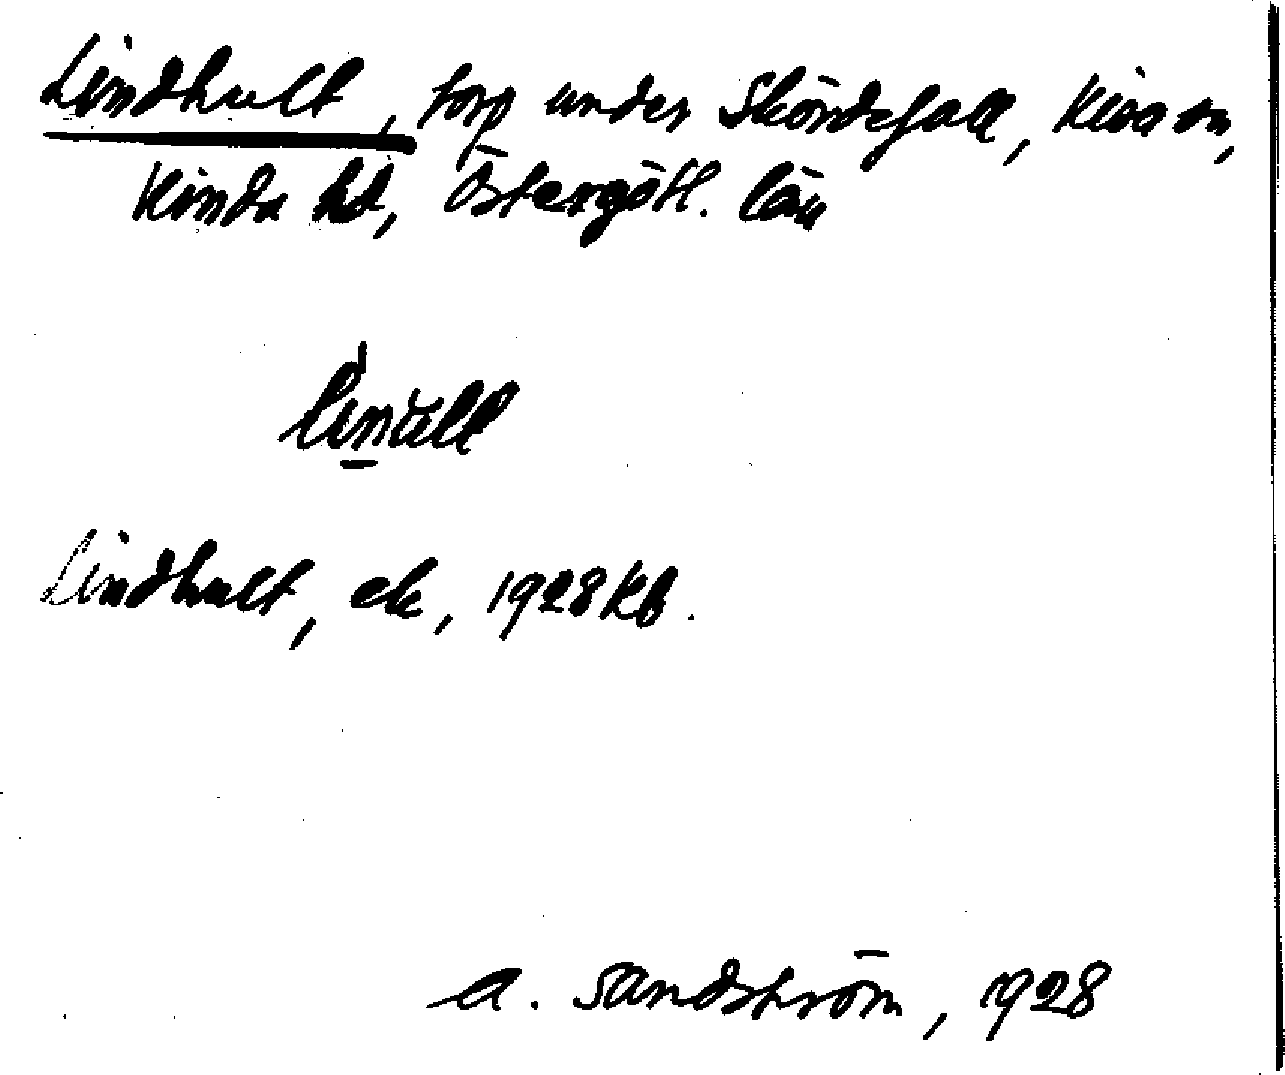 Lindhult, torp under Skördefall, Kisa sn,
Kinda hd, Östergötl. län
Lindhult, ek, 1928 kb.
A. Sandström, 1928